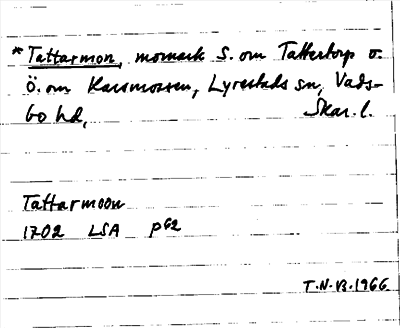 *Tattarmon, momark S. om Tattertorp o.
Ö. om Karsmossen, Lyrestads sn, Vads-
bo hd, Skar. l.
Tattarmoon
1702 LSA P62
T.N-B. 1966